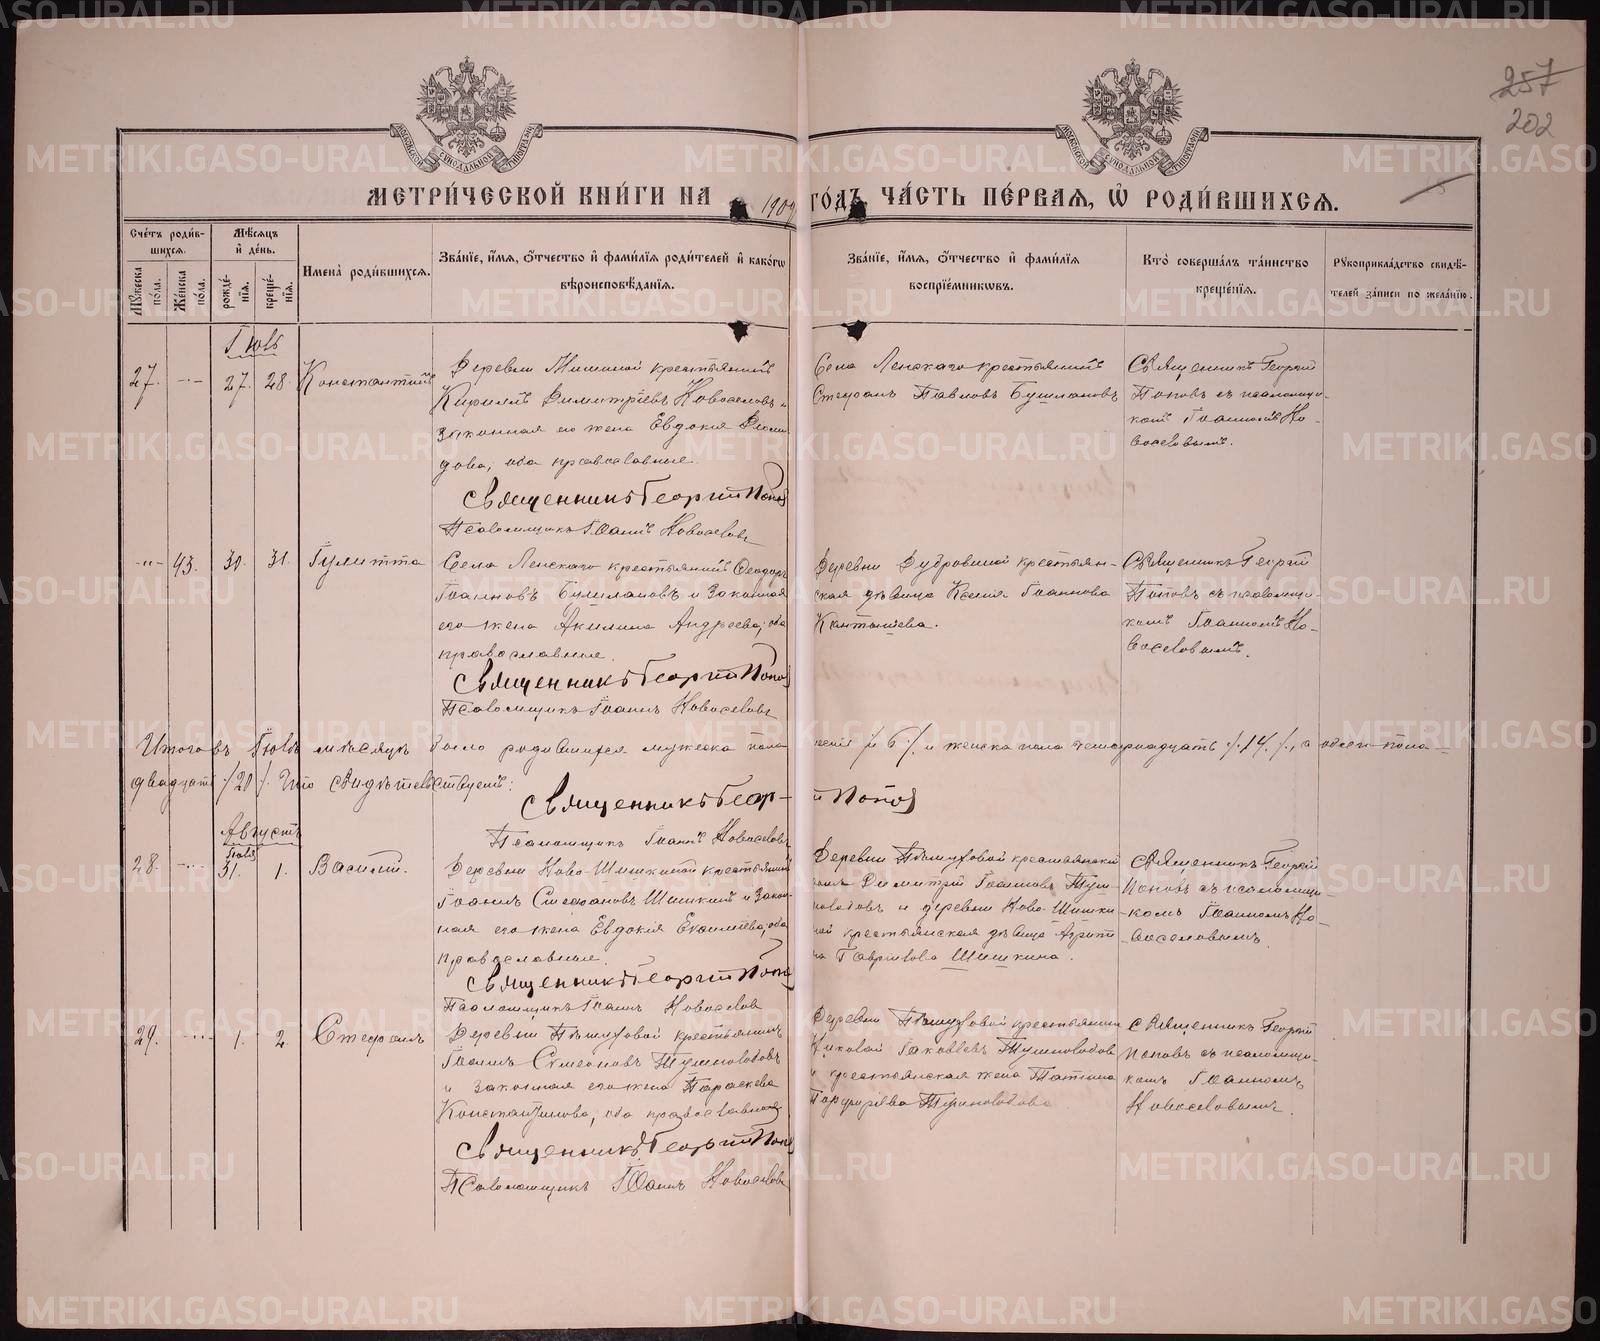 257
202
МОСКОВСКОЙ СѴНОДАЛЬНОЙ ТИПОГРАФІИ
МОСКОВСКОЙ СѴНОДАЛЬНОЙ ТИПОГРАФІИ
МЕТРИ́ЧЕСКОЙ КНИ́ГИ НА 1909 ГОДЪ ЧА́СТЬ ПЕ́РВАЯ, Ѡ РОДИ́ВШИХСЯ.
Сче́тъ роди́в-
шихся.
Мѣ́сяцъ
и̂ де́нь.
Мꙋ́жеска
по́ла.
Же́нска
по́ла.
рожде́-
нїя.
креще́-
нїя.
Имена̀ роди́вшихся.
Зва́нїе, и́мя, о́тчество и̂ фами́лїя роди́телей и̂ како́гѡ
вѣроисповѣ́данїя.
Зва́нїе, и́мя, о́тчество и̂ фами́лїя
воспрїе́мникѡвъ.
Кто̀ соверша́лъ та́инство
креще́нїя.
Рꙋкоприкла́дство свидѣ́-
телей за́писи по жела́нїю.
Іюль
27. 27. 28. Константинъ
Деревни крестьянинъ
Кириллъ Димитріевъ Новоселовъ и
законная его жена Евдокія
дова, оба православные.
Священникъ Георгій Попов
Псаломщикъ Іоаннъ Новоселовъ
Села Ленскаго крестьянинъ
Стефанъ Павловъ Бушлановъ
Священникъ Георгій
Поповъ съ псаломщи-
комъ Іоанномъ Но-
воселовымъ.
43. 30. 31. Іулитта
Села Ленскаго крестьянинъ Ѳеодоръ
Іоанновъ и законная
его жена Акилина Андреева, оба
православные.
Священникъ Георгій Попов
Псаломщикъ Іоаннъ Новоселовъ
Деревни Дубровиной крестьян-
ская дѣвица Ксенія Іоаннова
Кантышева.
Священникъ Георгій
Поповъ съ псаломщи-
комъ Іоанномъ Но-
воселовымъ.
Итого въ Іюлѣ мѣсяцѣ было родившихся мужеска пола /6/ и женска пола четырнадцать /14/, а обоего пола
двадцать /20/. Что свидѣтельствуетъ:
Священникъ Георгій Попов
Псаломщикъ Іоаннъ Новоселовъ
Августъ
Іюля
28. 31. 1. Василій.
Деревни Ново-Шишкиной крестьянинъ
Іоаннъ Стефановъ Шишкинъ и закон-
ная его жена Евдокія, оба
православные.
Священникъ Георгій Попов
Псаломщикъ Іоаннъ Новоселов
Деревни крестьянскій
сынъ Димитрій Іоанновъ Тупи-
и деревни Ново-Шишки-
ной крестьянская дѣвица Агрипи-
на Гаврилова Шишкина.
Священникъ Георгій
Поповъ съ псаломщи-
комъ Іоанномъ Но-
воселовымъ.
29. 1. 2. Стефанъ
Деревни крестьянинъ
Іоаннъ Симеоновъ
и законная его жена Параскева
Константинова, оба православные.
Священникъ Георгій Попов
Псаломщикъ Іоаннъ Новоселовъ
Деревни крестьянинъ
Николай Іаковлевъ
и крестьянская жена Татіана
Порфирьева
Священникъ Георгій
Поповъ съ псаломщи-
комъ Іоанномъ
Новоселовымъ.
METRIKI.GASO-URAL.RU